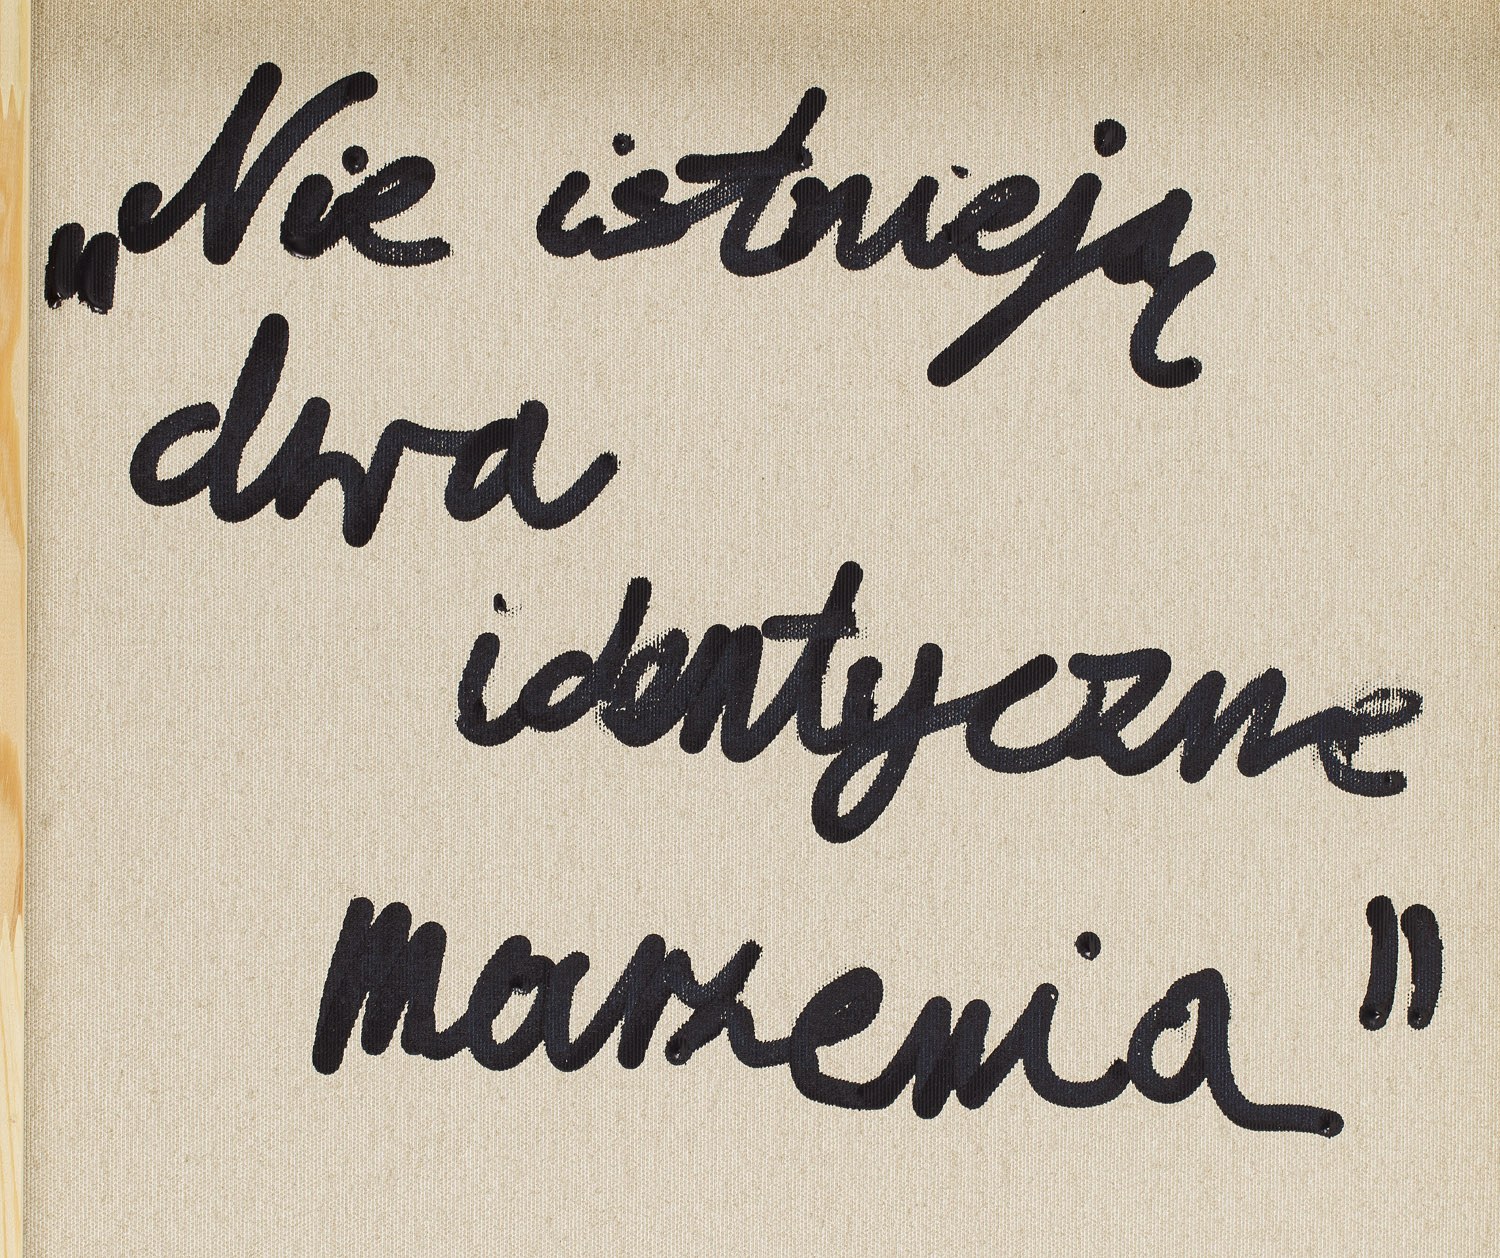 „Nie istnieją
dwa
identyczne
marzenia”